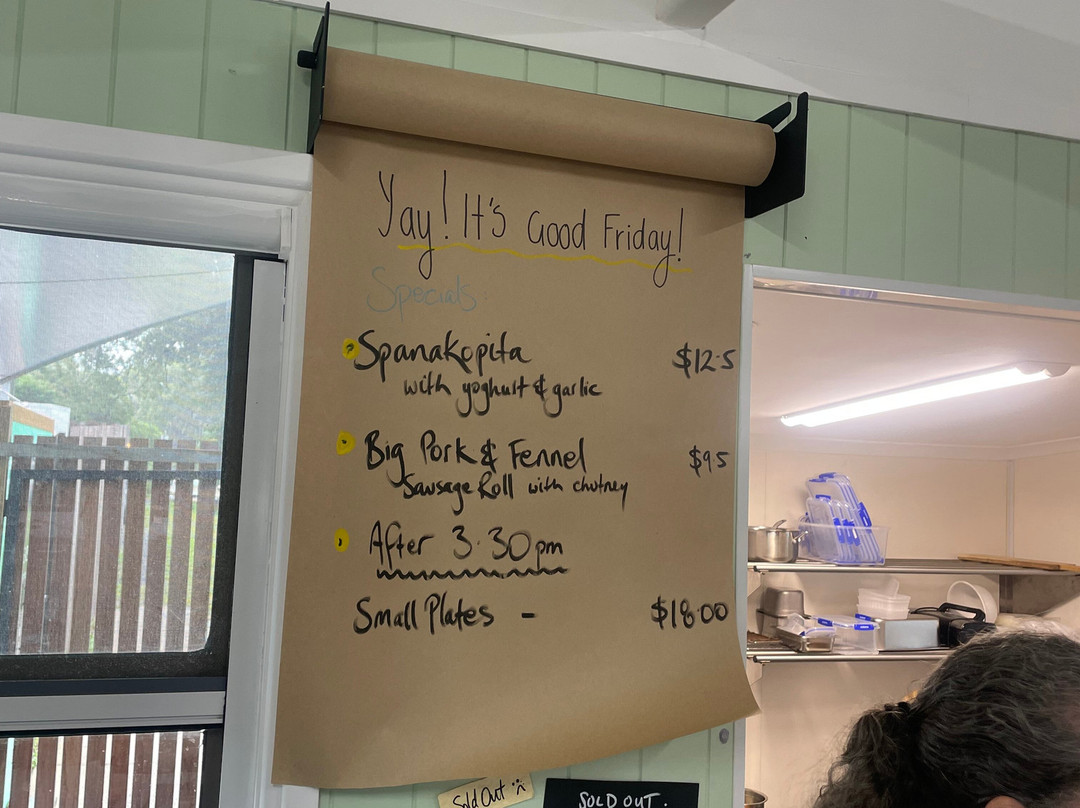 Yay! It's Good Friday!
Specials
Spanakopita $12.5
with yoghurt & garlic
Big Pork & Fennel $95
Sausage Roll with chutney
After 3.30pm
Small Plates - $18.00
Sold Out
SOLD OUT.